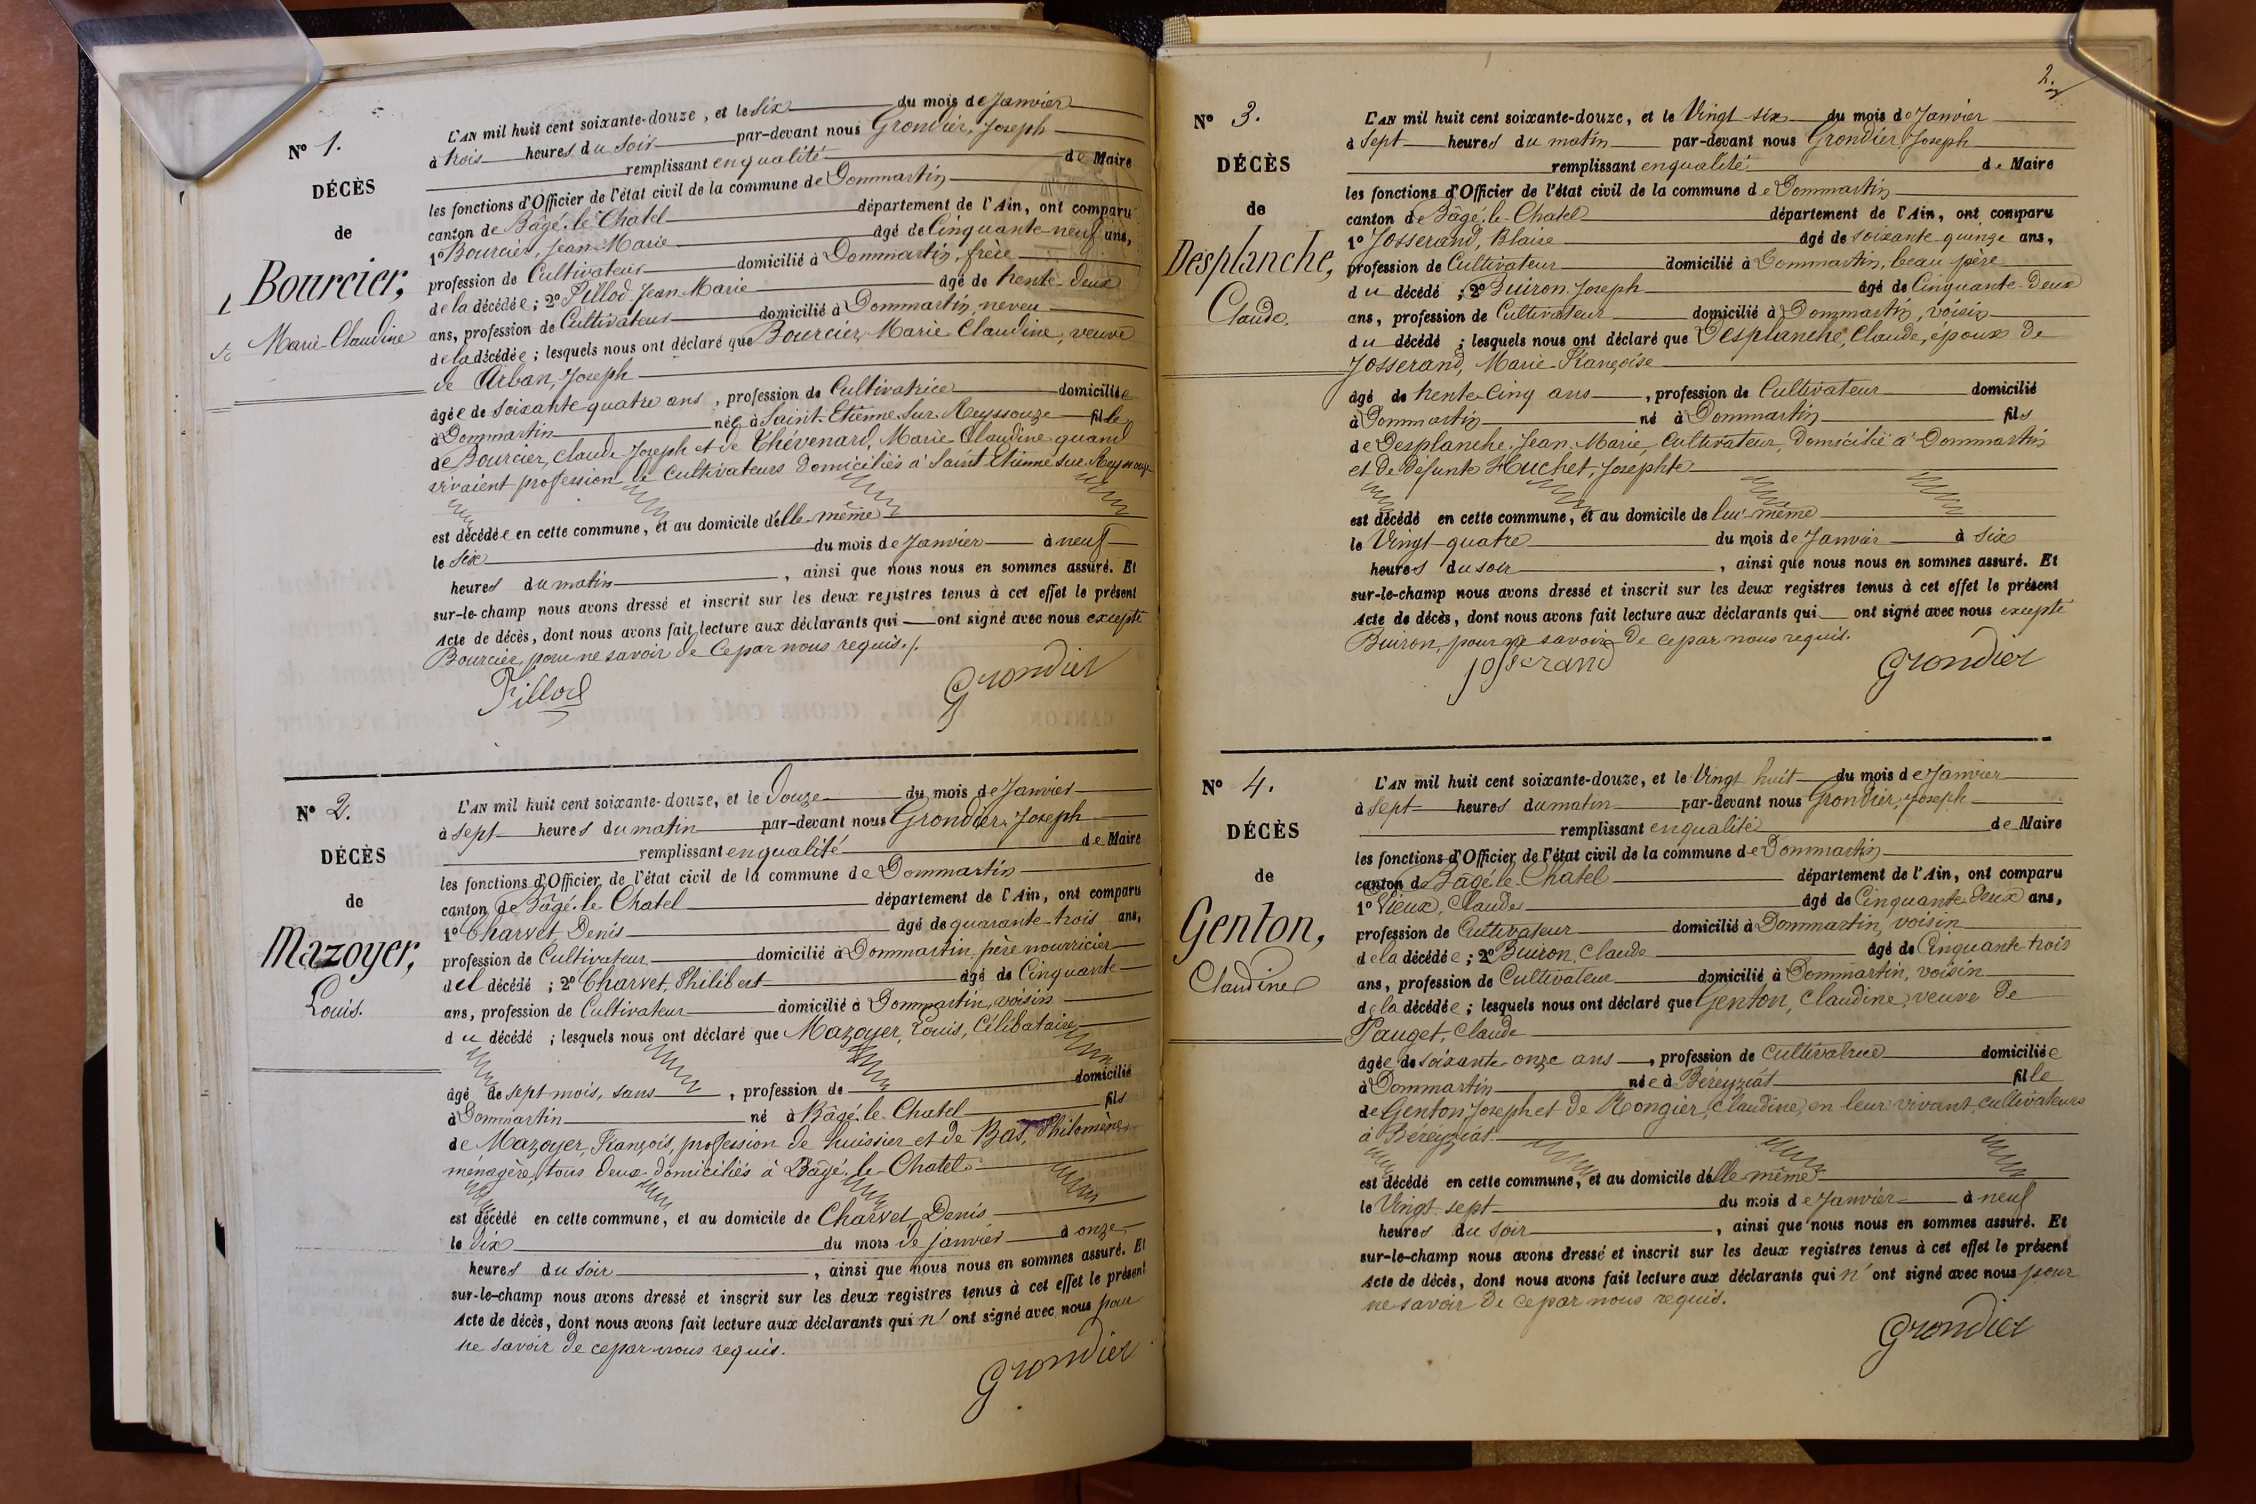 N° 1.
DÉCÈS
de
Bourcier,
Marie-Claudine
L'AN mil huit cent soixante-douze, et le Six du mois de Janvier
à trois heures du soir par-devant nous Grondier, Joseph
remplissant en qualité de Maire
les fonctions d'Officier de l'état civil de la commune de Dommartin
canton de Bâgé-le-Chatel département de l'Ain, ont comparu
1° Bourcier, Jean-Marie âgé de Cinquante-neuf ans,
profession de Cultivateur domicilié à Dommartin, frère
de la décédée ; 2° Pillod Jean Marie âgé de trente-deux
ans, profession de Cultivateur domicilié à Dommartin, neveu
de la décédée ; lesquels nous ont déclaré que Bourcier, Marie-Claudine, veuve
de Arban, Joseph
âgée de soixante quatre ans, profession de Cultivatrice domiciliée
à Dommartin née à Saint-Etienne-sur-Reyssouze fille
de Bourcier, Claude-Joseph et de Thévenard, Marie-Claudine quand
vivaient profession de Cultivateurs domiciliés à Saint Etienne sur Reyssouze
est décédée en cette commune, et au domicile d'elle-même
le six du mois de Janvier à neuf
heures du matin, ainsi que nous nous en sommes assuré. Et
sur-le-champ nous avons dressé et inscrit sur les deux registres tenus à cet effet le présent
Acte de décès, dont nous avons fait lecture aux déclarants qui ont signé avec nous excepté
Bourcier pour ne savoir de ce par nous requis./.
Pillod Grondier
N° 2.
DÉCÈS
de
Mazoyer,
Louis.
L'AN mil huit cent soixante-douze, et le Douze du mois de Janvier
à sept heures du matin par-devant nous Grondier, Joseph
remplissant en qualité de Maire
les fonctions d'Officier de l'état civil de la commune de Dommartin
canton de Bâgé-le-Chatel département de l'Ain, ont comparu
1° Charvet Denis âgé de quarante-trois ans,
profession de Cultivateur domicilié à Dommartin, père nourricier
del décédé ; 2° Charvet, Philibert âgé de Cinquante
ans, profession de Cultivateur domicilié à Dommartin, voisin
du décédé ; lesquels nous ont déclaré que Mazoyer, Louis, Célibataire
âgé de sept mois, sans, profession de domicilié
à Dommartin né à Bâgé-le-Chatel fils
de Mazoyer, François, profession de huissier et de Bas, Philomène
ménagère, tous deux domiciliés à Bâgé-le-Chatel
est décédé en cette commune, et au domicile de Charvet, Denis
le dix du mois de janvier à onze
heures du soir, ainsi que nous nous en sommes assuré. Et
sur-le-champ nous avons dressé et inscrit sur les deux registres tenus à cet effet le présent
Acte de décès, dont nous avons fait lecture aux déclarants qui n'ont signé avec nous pour
ne savoir de ce par nous requis.
Grondier
2.
N° 3.
DÉCÈS
de
Desplanche,
Claude.
L'AN mil huit cent soixante-douze, et le Vingt-six du mois de Janvier
à sept heures du matin par-devant nous Grondier Joseph
remplissant en qualité de Maire
les fonctions d'Officier de l'état civil de la commune de Dommartin
canton de Bâgé-le-Chatel département de l'Ain, ont comparu
1° Josserand, Blaise âgé de soixante-quinze ans,
profession de Cultivateur domicilié à Dommartin, beau père
du décédé ; 2° Buiron Joseph âgé de Cinquante-Deux
ans, profession de Cultivateur domicilié à Dommartin, voisin
du décédé ; lesquels nous ont déclaré que Desplanche, Claude, époux de
Josserand, Marie-Françoise
âgé de trente-Cinq ans, profession de Cultivateur domicilié
à Dommartin né à Dommartin fils
de Desplanche, Jean-Marie, Cultivateur, Domicilié à Dommartin
et de défunte Huchet, Josephte
est décédé en cette commune, et au domicile de lui-même
le Vingt-quatre du mois de Janvier à six
heures du soir, ainsi que nous nous en sommes assuré. Et
sur-le-champ nous avons dressé et inscrit sur les deux registres tenus à cet effet le présent
Acte de décès, dont nous avons fait lecture aux déclarants qui ont signé avec nous excepté
Buiron, pour ne savoir de ce par nous requis.
Josserand Grondier
N° 4.
DÉCÈS
de
Genton,
Claudine
L'AN mil huit cent soixante-douze, et le Vingt-huit du mois de Janvier
à sept heures du matin par-devant nous Grondier, Joseph
remplissant en qualité de Maire
les fonctions d'Officier de l'état civil de la commune de Dommartin
canton de Bâgé-le-Chatel département de l'Ain, ont comparu
1° Vieux, Claude âgé de Cinquante Deux ans,
profession de Cultivateur domicilié à Dommartin, voisin
de la décédée ; 2° Buiron, Claude âgé de Cinquante-trois
ans, profession de Cultivateur domicilié à Dommartin, voisin
de la décédée ; lesquels nous ont déclaré que Genton, Claudine, veuve de
Pauget, Claude
âgée de soixante-onze ans, profession de Cultivatrice domiciliée
à Dommartin née à Béreyziat fille
de Genton Joseph et de Rongier, Claudine, en leur vivant cultivateurs
à Béreyziat
est décédé en cette commune, et au domicile d'elle-même
le Vingt-sept du mois de Janvier à neuf
heures du soir, ainsi que nous nous en sommes assuré. Et
sur-le-champ nous avons dressé et inscrit sur les deux registres tenus à cet effet le présent
Acte de décès, dont nous avons fait lecture aux déclarants qui n'ont signé avec nous pour
ne savoir de ce par nous requis.
Grondier